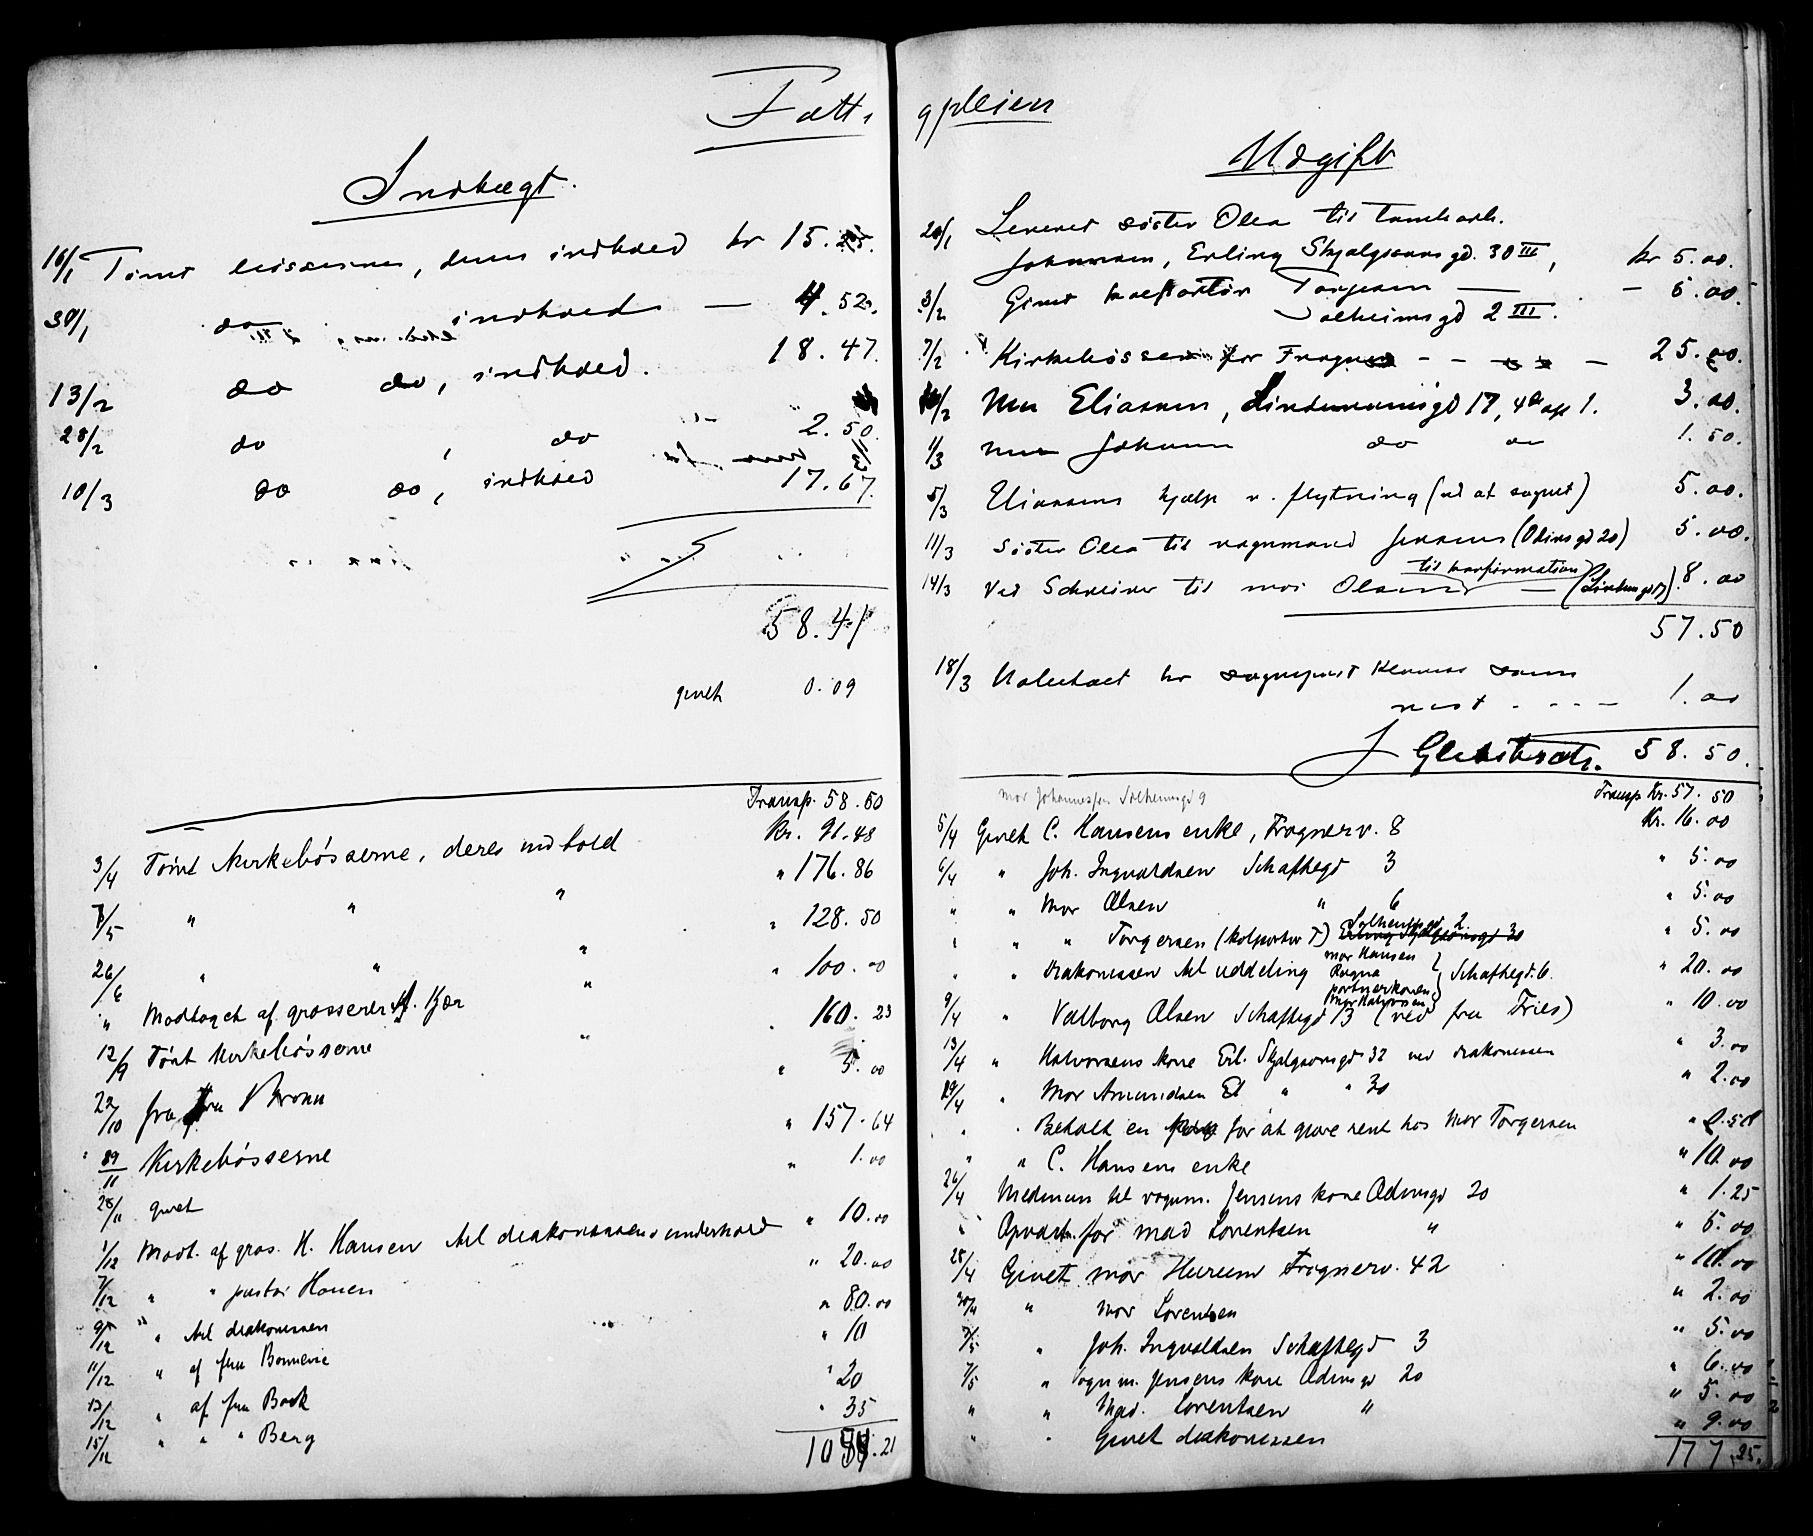 Fatt.
Indtægt.
16/1 Tømt bøsserne, deres indhold kr 15.25.
30/1 do indhold — 4.52.
13/2 do do, indhold. 18.47.
28/2 do , do 2.50.
10/3 do do, indhold 17.67.
58.41
givet 0.09
Transp. 58.50
3/4 Tømt Kirkebøsserne, deres indhold Kr. 91.48
7/5 " " " " 176.86
26/6 " " " " 128.50
" Modtaget af grosserer Kjær " 100.00
12/9 Tømt Kirkebøsserne 160.23
22/10 fra fru Bronn " 5.00
89/11 Kirkebøsserne " 157.64
28/11 givet " 1.00
1/12 Modt. af gros. H. Hansen til diakonissens underhold " 10.00
7/12 " " pastor Hansen " 20.00
9/12 " til diakonissen " 80.00
11/12 " af fru Bonnevie " 10
13/12 " af fru Bock " 20
15/12 " " " Berg " 35
.21
gpleien
Udgift
20/1 Leveret søster Olea til
Johannsen, Erling Skjalgsonns gd. 30 III, kr 5.00.
3/2 Givet kolportør Torgersen — 5.00.
Solheimsgd 2 III.
7/2 Kirkebøssen for Frogner - - — 25.00.
/2 Mor Eliassen, Lindemansgd 17, 4de opg 1. 3.00.
1/3 mor Johansen do do 1.50.
5/3 Eliassens hjælp v. flytning (ud af sognet) 5.00.
11/3 Søster Olea til vognmand Jensens (Odinsgd 20) 5.00.
til konfirmation
14/3 Ved Schreiner til mor Olsen — (Lindemgd 17). 8.00
57.50
18/3 1.00
58.50.
Mor Johannessen Solheimsgd 9 Transp Kr. 57.50
5/4 Givet C. Hansens enke, Frognerv. 8 Kr. 16.00
6/4 " Joh. Ingvaldsen Schaftegd 3 " 5.00
" " Mor Olsen " 6 " 5.00
" " " Torgersen (kolportør T) Solheimsgd 2 Erling Skjalgsonsgd 30 " 5.00
" " diakonissen til uddeling mor Hansen Ragna portnerkonen Mor Halvorsen } Schaftegd. 6. " 20.00
9/4 " Valborg Olsen Schaftegd 13 (ved fru Fries) " 10.00
13/4 " Halvorsens kone Erl. Skjalgsonsgd 32 ved diakonissen " 3.00
29/4 " Mor Amundsen El " " 30 " 2.00
" . Betalt en for at gjøre rent hos Mor Torgersen " 0.50
" " C. Hansens enke " 10.00
26/4 Medicin til vognm. Jensens kone Odinsgd 20 " 1.25
" Opvartn. for mad Lorentsen " " 5.00
28/4 Givet mor Hurum Frognerv. 42 " 10.00
30/4 " Mor Lorentsen " 2.00
2/5 " Joh. Ingvaldsen Schaftegd 3 " 5.00
7/5 " vognm. Jensens kone Odinsgd 20 " 6.00
" " Mad. Lorentsen " " 5.00
" " Givet diakonissen " 9.00
177.25.